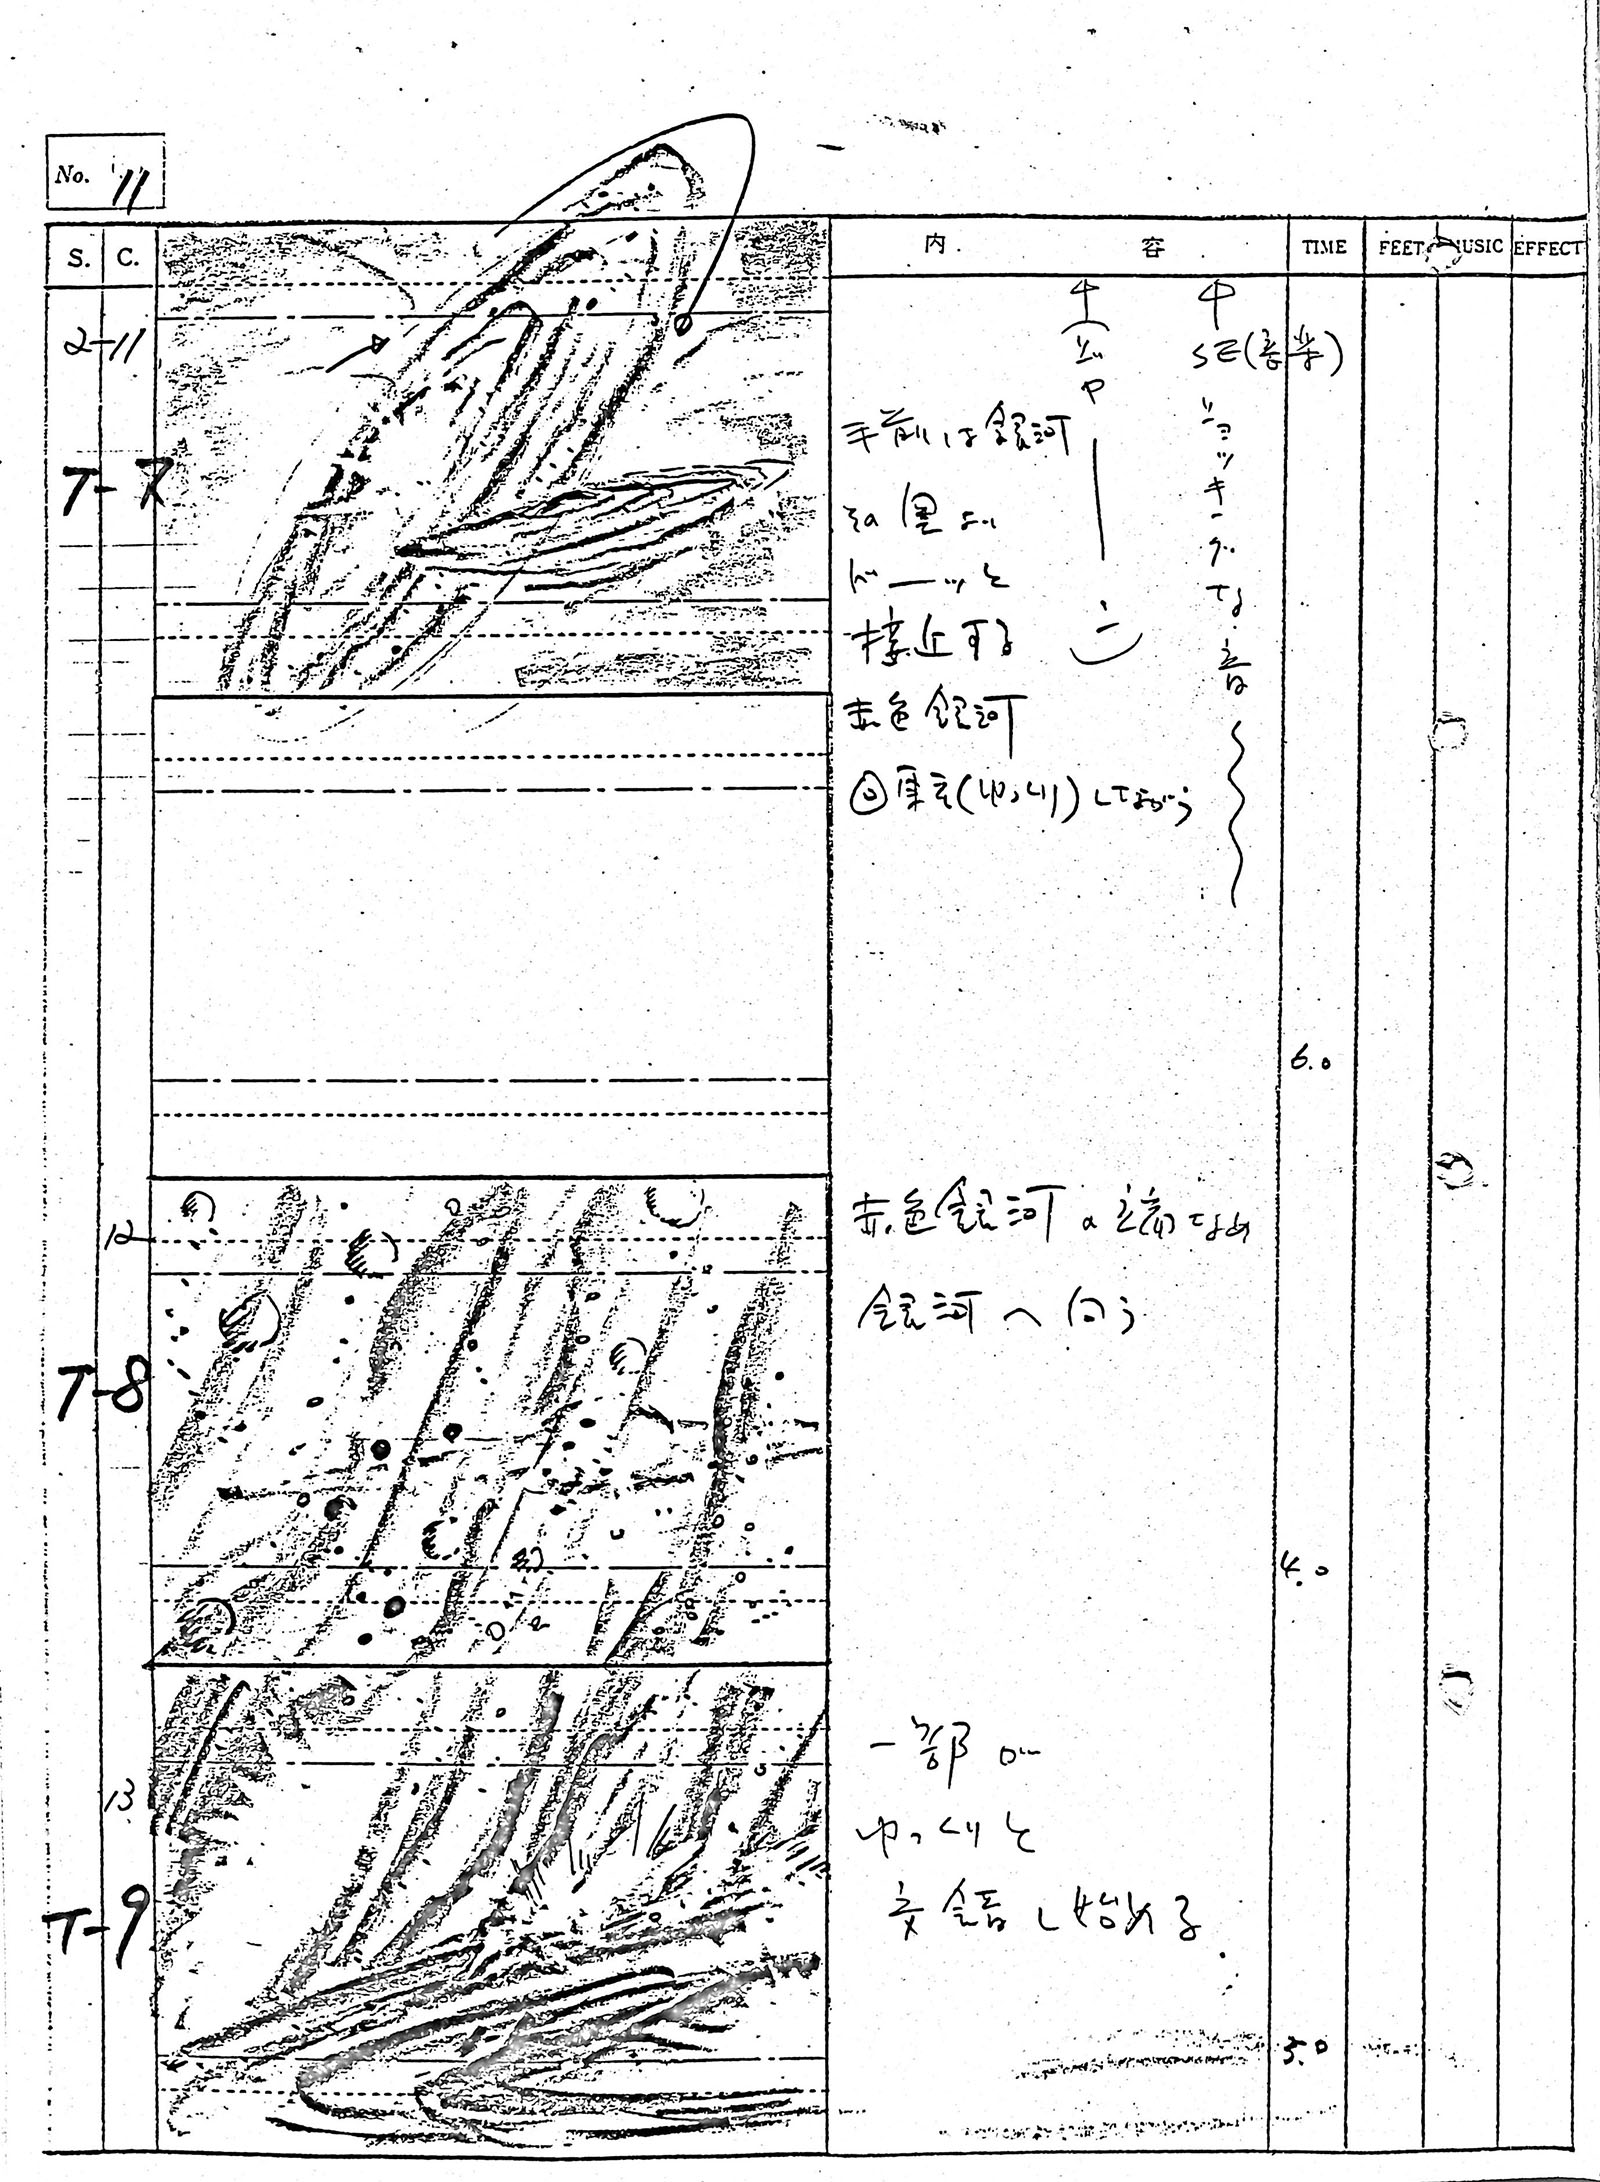 No. 11
S. C. 内 容 TIME FEET MUSIC EFFECT
2-11
T-7
手前は銀河
その奥より
ドーーッと
接近する
赤色銀河
SE(音楽)
ショッキングな音
6.0
12
T-8
赤色銀河の
銀河へ向う
4.0
13
T-9
一部が
ゆっくりと
交錯し始める
5.0